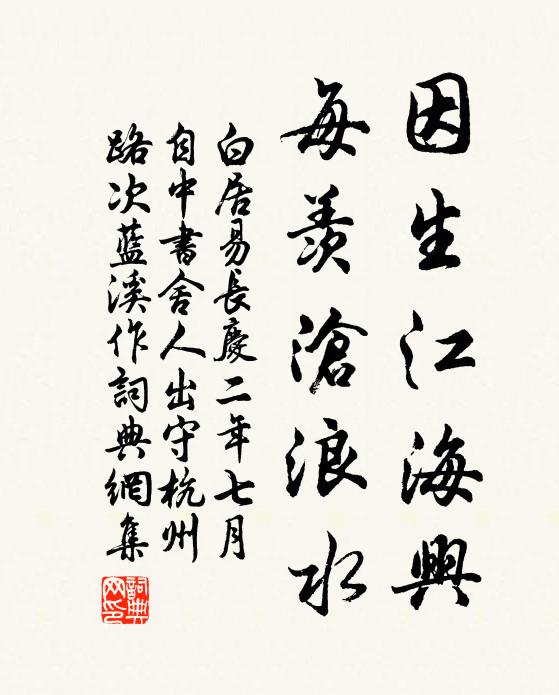 因生江海興
每羨滄浪水
白居易長慶二年七月
自中書舍人出守杭州
路次藍溪作詞典網集
詞典網印